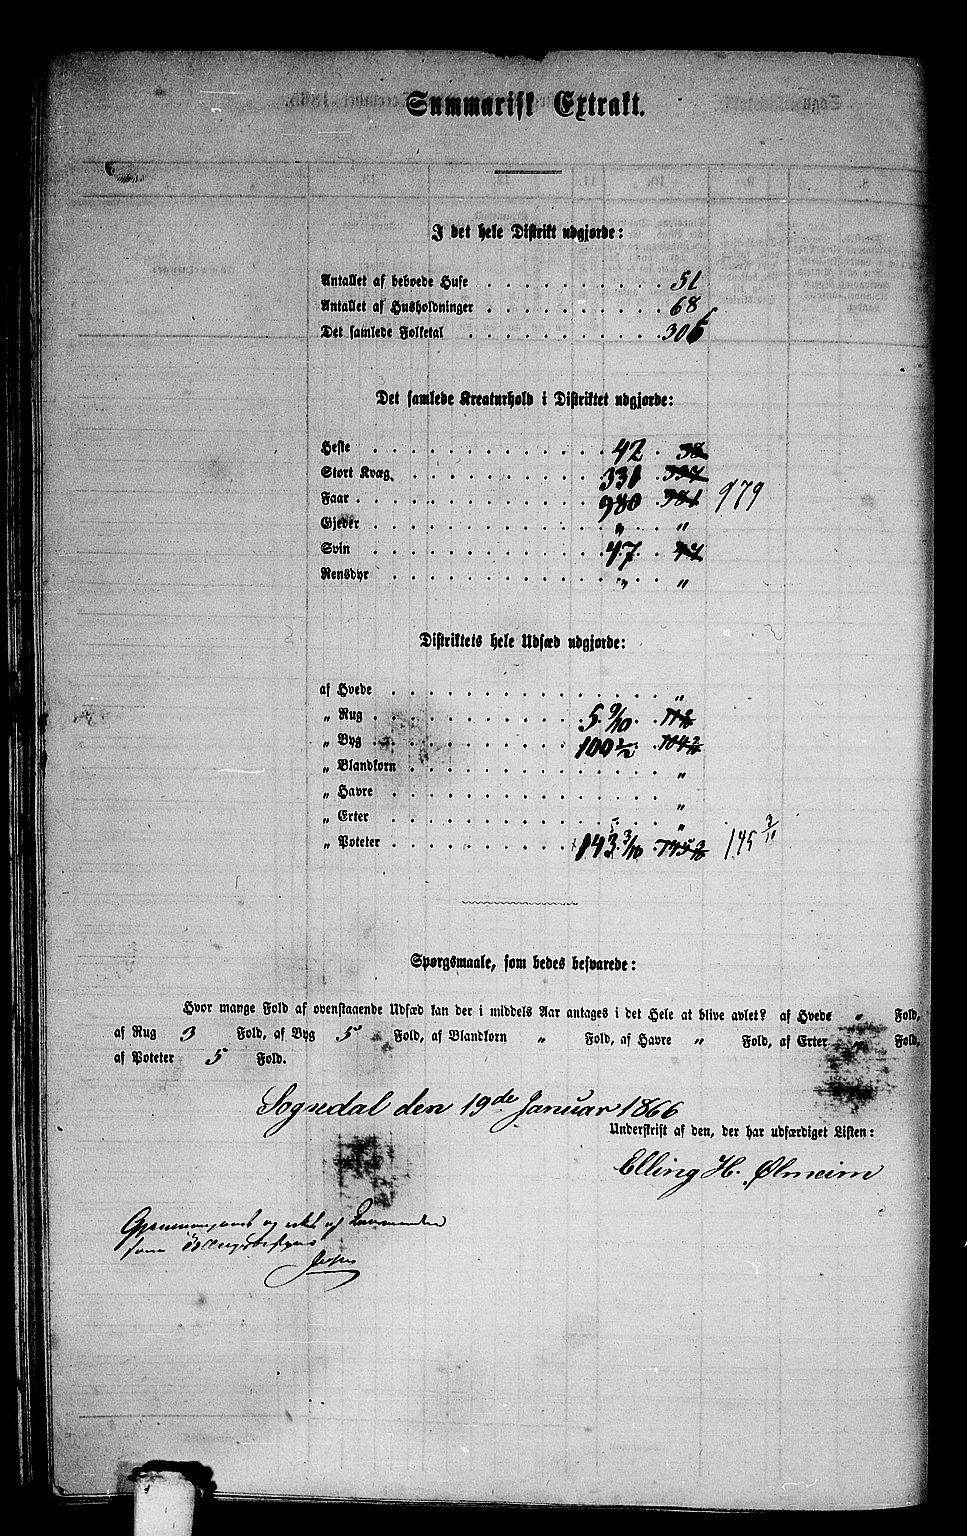 Summarisk Extrakt.
I det hele Distrikt udgjorde:
Antallet af beboede Huse 51
Antallet af Husholdninger 68
Det samlede Folketal 306
Det samlede Kreaturhold i Distriktet udgjorde:
Heste 42 38
Stort Kvæg 331 337
Faar 980 981 979
Gjeder „ „
Sviin 47 44
Rensdyr „ „
Distriktets hele Udsæd udgjorde:
af Hvede „
„ Rug 5 9/10
„ Byg 100 1/2 104 2/10
„ Blandkorn „
„ Havre „
„ Erter „
„ Poteter 143 3/10 145 3/10 145 3/10
Spørgsmaale, som bedes besvarede:
Hvor mange Fold af ovenstaaende Udsæd kan der i middels Aar antages i det Hele at blive avlet? af Hvede „ Fold,
af Rug 3 Fold, af Byg 5 Fold, af Blandkorn „ Fold, af Havre „ Fold, af Erter „ Fold,
af Poteter 5 Fold.
Sogndal den 19de Januar 1866
Underskrift af den, der har udfærdiget Listen:
Elling H. Ølmeim
og af